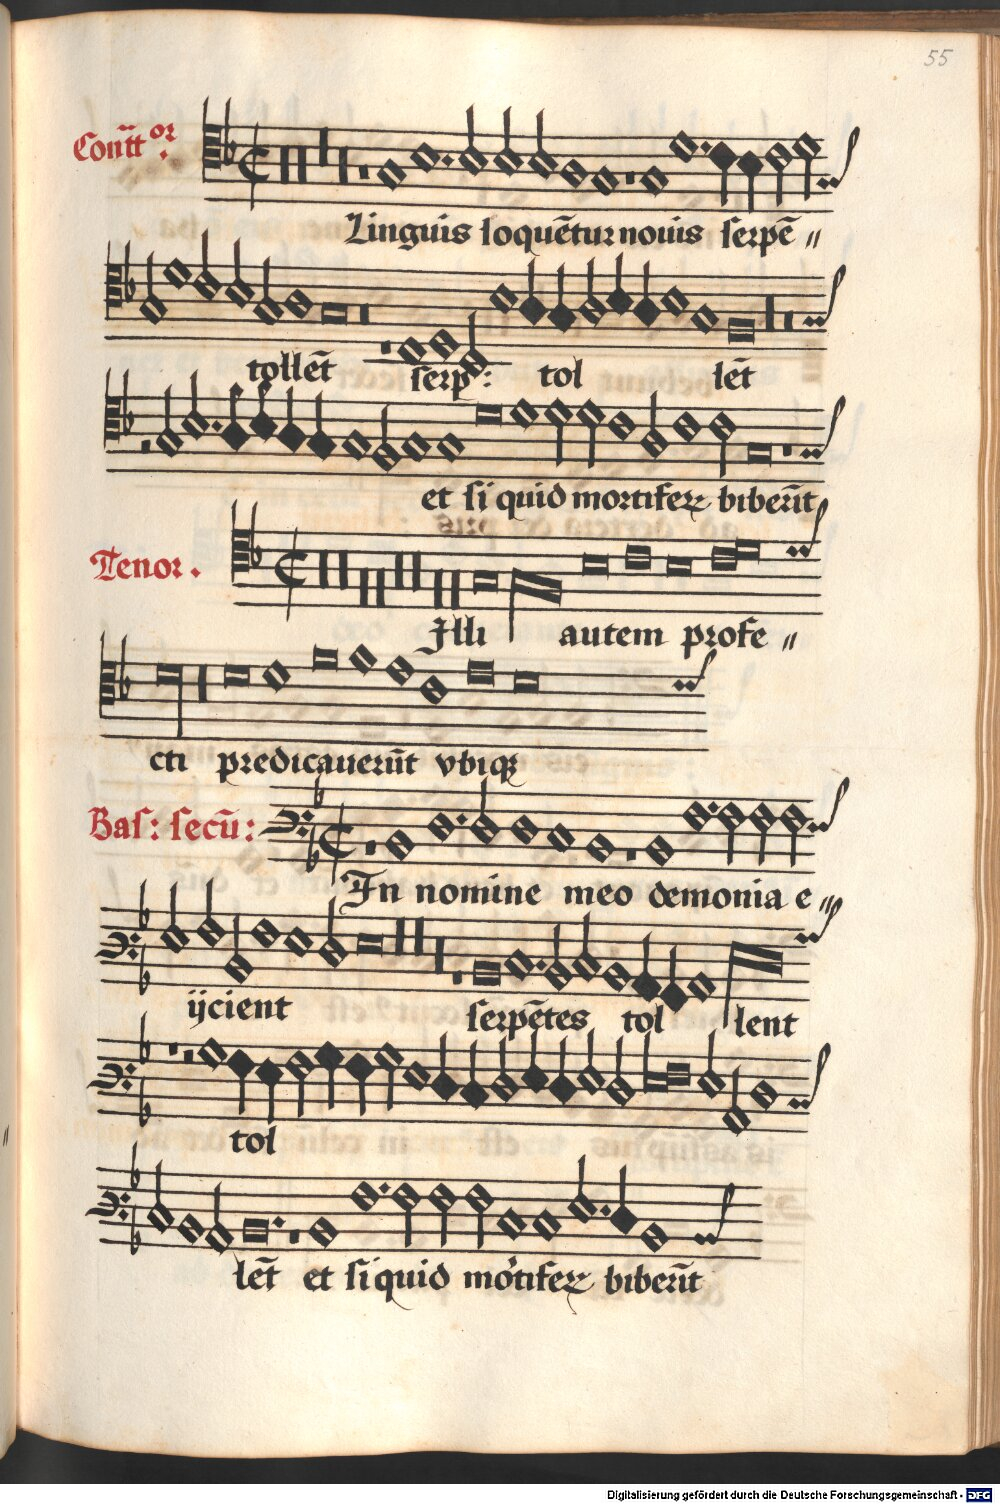 55
Conūt or.
Linguis loquētur nouis serpē〃
tollēt serp: tol lēt
et si quid mortifeꝝ biberīt
Tenor.
Illi autem profe〃
cti predicauerūt vbiqꝫ
Bas: secū:
In nomine meo demonia e〃
ijcient serpētes tol lent
tol
lēt et si quid mortifeꝝ biberīt
Digitalisierung gefördert durch die Deutsche Forschungsgemeinschaft - DFG